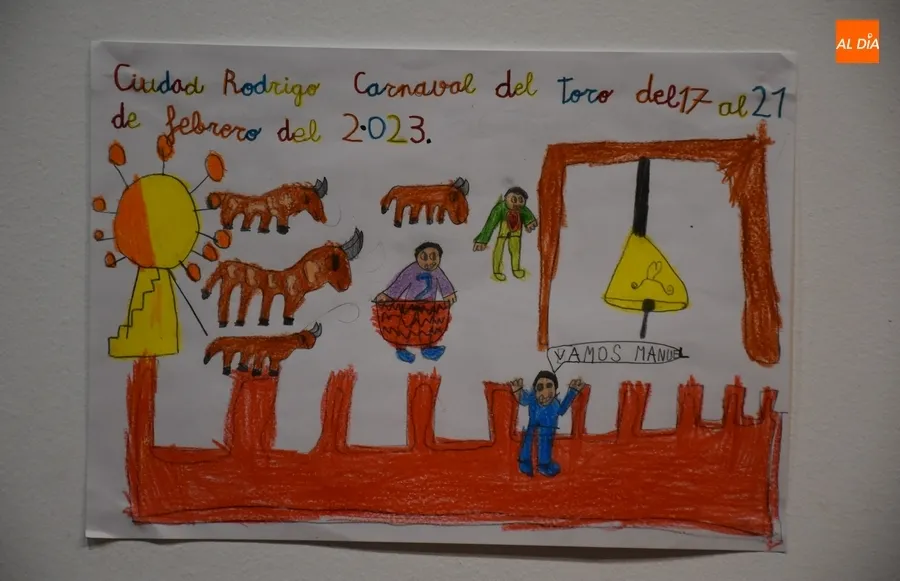 Ciudad Rodrigo Carnaval del toro del 17 al 21
de febrero del 2.023.
VAMOS MANUEL
AL DÍA